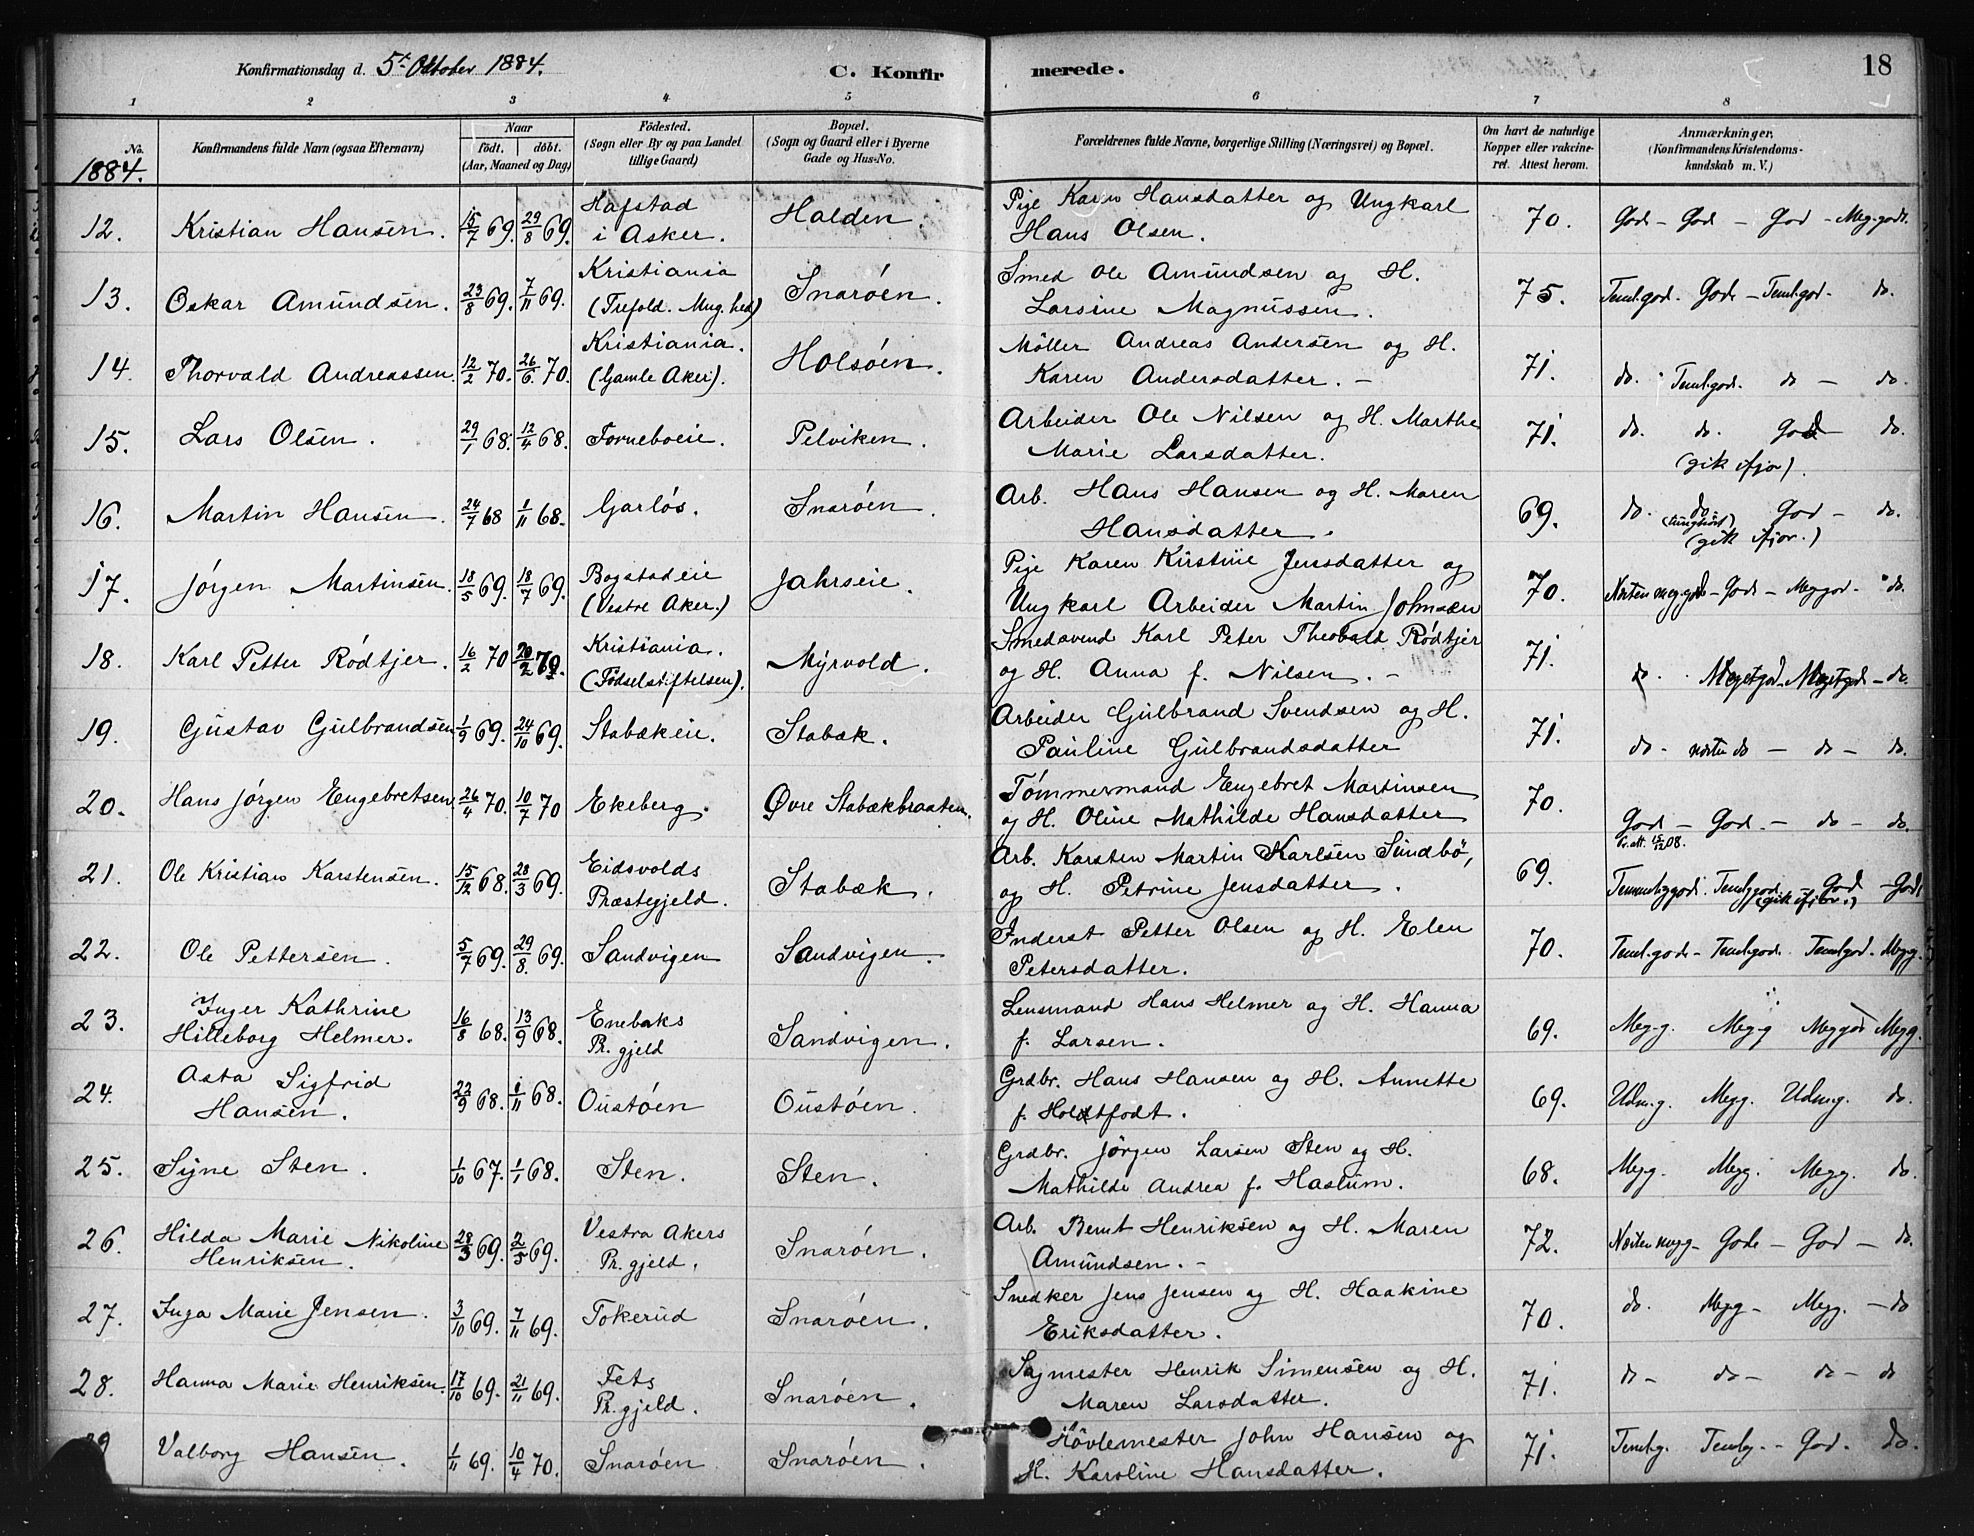 Konfirmationsdag d. 5t Oktober 1884. C. Konfir merede. 18
1 2 3 4 5 6 7 8
No. Konfirmandens fulde Navn (ogsaa Efternavn) Naar Fødested. Bopæl. Forældrenes fulde Navne, borgerlige Stilling (Næringsvei) og Bopæl. Om havt de naturlige Anmærkninger.
født. døbt. (Sogn eller By og paa Landet (Sogn og Gaard eller i Byerne Kopper eller vakcine- (Konfirmandens Kristendoms-
(Aar, Maaned og Dag) tillige Gaard) Gade og Hus-No. ret. Attest herom. kundskab m. V.)
1884.
12. Kristian Hansen. 15/7 69. 29/8 69. Hafstad i Asker. Halden. Pige Karen Hansdatter og Ungkarl
Hans Olsen. 70. God - God - God - Meg. godt.
13. Oskar Amundsen. 23/8 69. 7/11 69. Kristiania (Trefold. Mug. hed) Snarøen. Smed Ole Amundsen og H.
Larsine Magnussen. 75. Teml.god. God. - Teml.god. do.
14. Thorvald Andreassen. 12/2 70. 26/6 70. Kristiania. (Gamle Aker). Holsøen. Møller Andreas Andersen og H.
Karen Andersdatter. - 71. do. Teml.god. do - do.
15. Lars Olsen. 29/1 68. 12/4 68. Forneboeie. Pelviken. Arbeider Ole Nilsen og H. Marthe
Marie Larsdatter. 71. do. do. God do.
(gik ifjor).
16. Martin Hansen. 24/7 68 1/11 68. Garløs. Snarøen. Arb. Hans Hansen og H. Maren
Hansdatter. 69. do. do. God - do.
(tunghørt)
(gik ifjor.)
17. Jørgen Martinsen. 18/5 69. 18/7 69. Bogstadeie (Vestre Aker.) Jahrseie. Pige Karen Kirstine Jensdatter og
Ungkarl Arbeider Martin Johnsen 70. Næsten meg.god - God - Meg god - do.
18. Karl Petter Rødtjer. 16/2 70 20/2 70. Kristiania. (Fødselstiftelsen). Myrvold. Smedsvend Karl Peter Theobald Rødtjer
og H. Anna f. Nilsen. - 71. do. Megetgod - Megetgod - do.
19. Gustav Gulbrandsen 1/9 69. 24/10 69. Stabækeie. Stabæk. Arbeider Gulbrand Svendsen og H.
Pauline Gulbrandsdatter 71. do - næsten do - do - do.
20. Hans Jørgen Engebretsen 26/4 70. 10/7 70 Ekeberg. Øvre Stabækbraaten. Tømmermand Engebret Martinsen
og H. Oline Mathilde Hansdatter 70. God - God. - do - do.
21. Ole Kristian Karstensen. 15/12 68. 28/3 69. Eidsvolds Præstegjeld. Stabæk. Arb. Karsten Martin Karlsen Sundbø,
og H. Petrine Jensdatter. 69. Temmeliggod. Teml.god God - God
(gik ifjor.)
22. Ole Pettersen. 5/7 69. 29/8 69. Sandvigen Sandvigen. Inderst Petter Olsen og H. Elen
Petersdatter. 70. Teml.god. - Teml.god. Teml.god. Meg g.
23. Inger Kathrine
Hilleborg Helmer. 16/8 68. 13/9 68. Enebaks Pr. gjeld Sandvigen. Lensmand Hans Helmer og H. Hanna
f. Larsen. 69. Meg. g. Meg. g Meg god Meg g.
24. Asta Sigfrid
Hansen. 22/9 68. 1/11 68. Oustøen Oustøen. Grdbr. Hans Hansen og H. Annette
f. Holtfodt. 69. Udm. g. Meg g. Udm. g. do.
25. Signe Sten. 1/10 67. 1/1 68. Sten. Sten. Grdbr. Jørgen Larsen Sten og H.
Mathilde Andrea f. Haslum. 68. Meg. g. Meg g. Meg g. do.
26. Hilda Marie Nikoline
Henriksen. 28/3 69. 2/5 69. Vestra Akers Pr. gjeld. Snarøen. Arb. Bernt Henriksen og H. Maren
Amundsen. - 72. Næsten meg g - God. - God - do.
27. Inga Marie Jensen. 3/10 69. 7/11 69. Tokerud Snarøen. Snedker Jens Jensen og H. Haakine
Eriksdatter. 70. do. Meg g - Meg g. - do
28. Hanna Marie Henriksen. 17/10 69. 21/11 69. Fets Pr. gjeld. Snarøen. Sagmester Henrik Simensen og H.
Maren Larsdatter. 71. do - do - do - do
29 Valborg Hansen. 1/11 69. 10/4 70. Snarøen Snarøen. Høvlemester John Hansen og
H. Karoline Hansdatter. 71. Teml.g. Teml.g. - God. do.